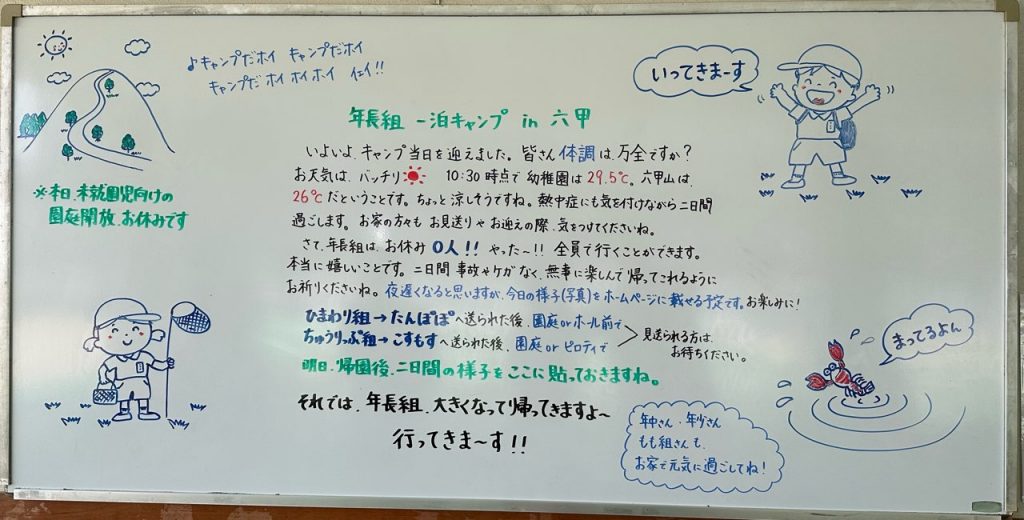 ♪キャンプだホイ キャンプだホイ
キャンプだ ホイ ホイ ホイ イエイ!!
いってきまーす
年長組 一泊キャンプ in 六甲
いよいよ、キャンプ当日を迎えました。皆さん体調は、万全ですか?
お天気は、バッチリ 10:30 時点で 幼稚園は 29.5℃。六甲山は、
26℃ だということです。ちょっと 涼しそうですね。熱中症にも気を付けながら二日間
過ごします。お家の方々も お見送りや お迎えの際、気をつけてくださいね。
さて、年長組は、お休み 0人!! やった~!! 全員で行くことができます。
本当に嬉しいことです。二日間 事故やケガなく、無事に楽しんで帰ってこれるように
お祈りくださいね。夜遅くなると思いますが、今日の様子(写真)をホームページに載せる予定です。お楽しみに!
ひまわり組→たんぽぽへ送られた後、園庭orホール前で
ちゅうりっぷ組→こすもすへ送られた後、園庭 or ピロティで
見送られる方は、
お待ちください。
明日、帰園後、二日間の様子をここに貼っておきますね。
それでは、年長組、大きくなって帰ってきますよ~
行ってきま~す!!
※本日、未就園児向けの
園庭開放、お休みです
まってるよん
年中さん・年少さん
もも組さんも、
お家で元気に過ごしてね!